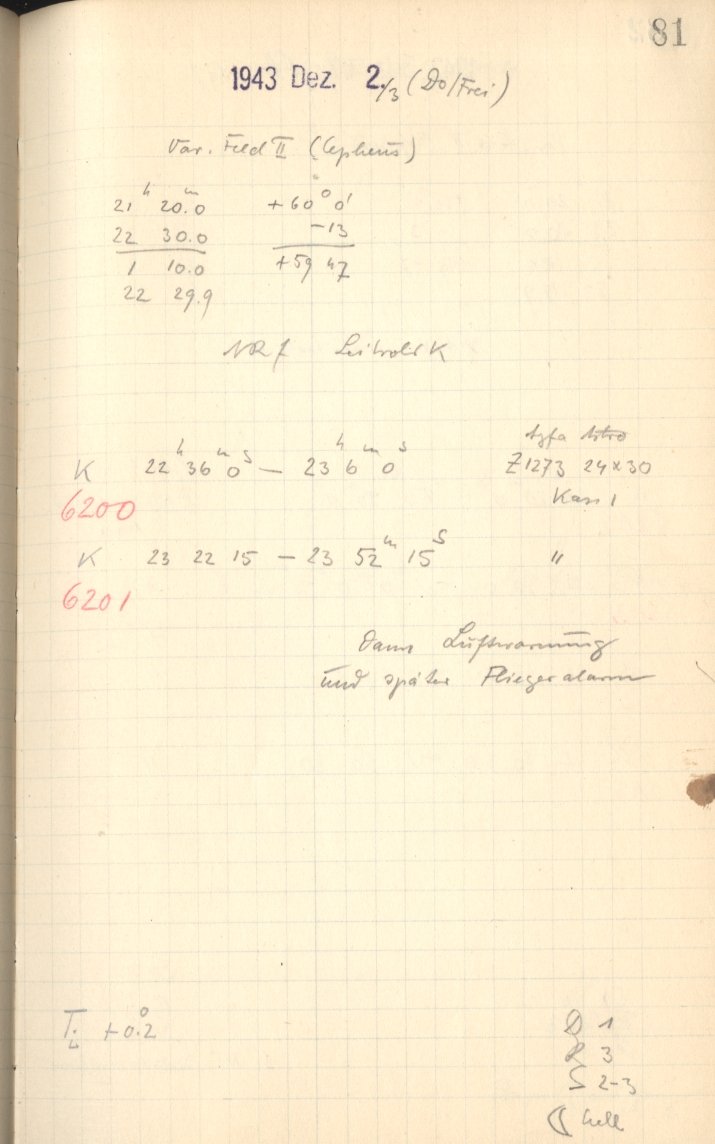 81
1943 Dez. 2./3 (Do/Frei)
Var. Feld II (Cepheus)
21ʰ 20.0ᵐ +60° 0'
22 30.0 -13
1 10.0 +59 47
22 29.9
Leitrohr K
K 22ʰ 36ᵐ 0ˢ — 23ʰ 6ᵐ 0ˢ Agfa Astro
Z1273 24x30
6200 Kass 1
K 23 22 15 — 23 52ᵐ 15ˢ "
6201
Dann Luftwarnung
und später Fliegeralarm
T_L +0.°2
D 1
R 3
S 2-3
☾ hell